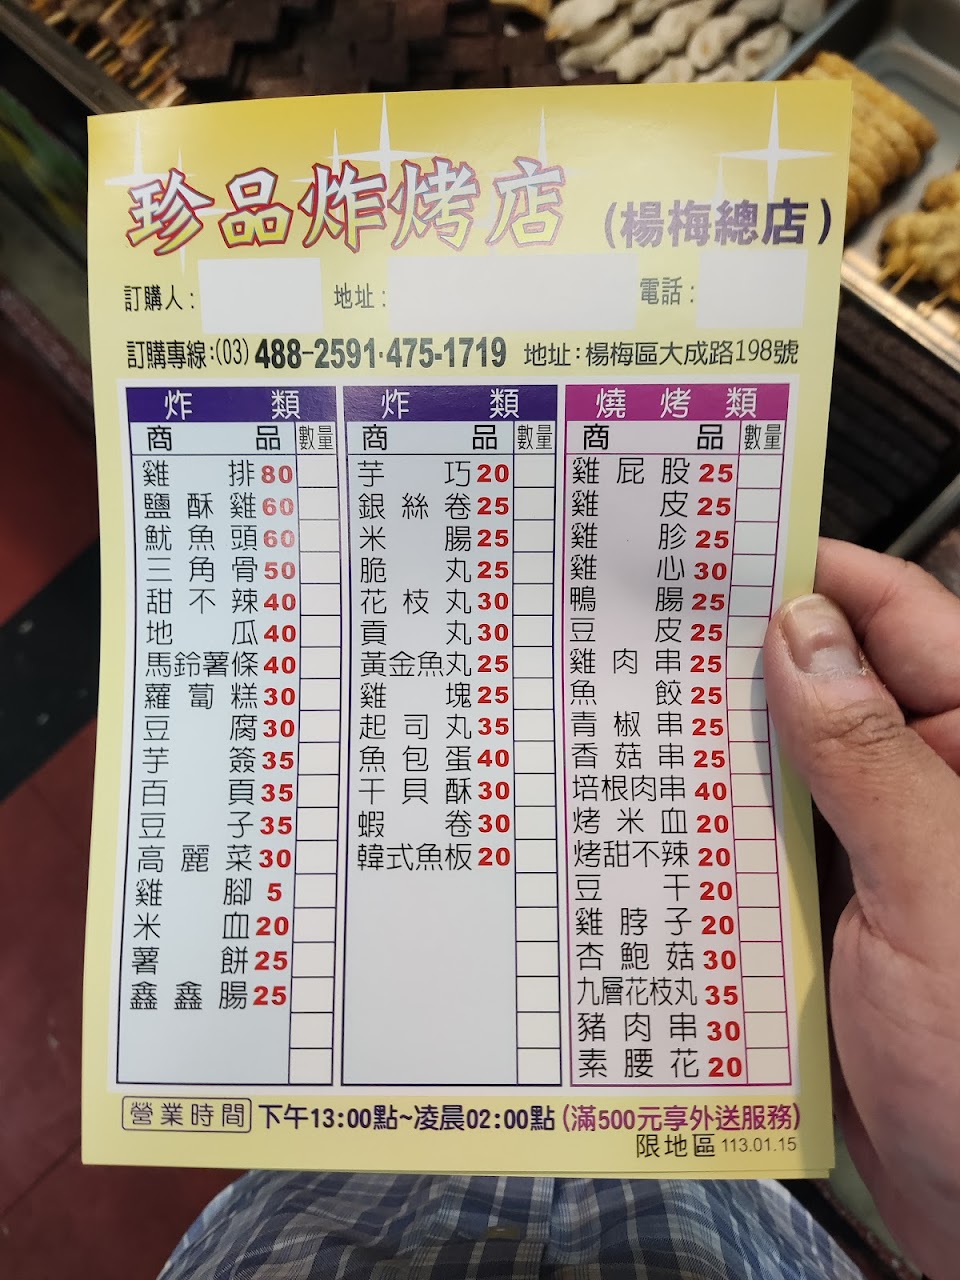 珍品炸烤店 (楊梅總店)
訂購人: 地址: 電話:
訂購專線:(03) 488-2591·475-1719 地址:楊梅區大成路198號
炸類
商品 數量
雞排 80
鹽酥雞 60
魷魚頭 60
三角骨 50
甜不辣 40
地瓜 40
馬鈴薯條 40
蘿蔔糕 30
豆腐 30
芋簽 35
百頁 35
豆子 35
高麗菜 30
雞腳 5
米血 20
薯餅 25
鑫鑫腸 25
炸類
商品 數量
芋巧 20
銀絲卷 25
米腸 25
脆丸 25
花枝丸 30
貢丸 30
黃金魚丸 25
雞塊 25
起司丸 35
魚包蛋 40
干貝酥 30
蝦卷 30
韓式魚板 20
燒烤類
商品 數量
雞屁股 25
雞皮 25
雞胗 25
雞心 30
鴨腸 25
豆皮 25
雞肉串 25
魚餃 25
青椒串 25
香菇串 25
培根肉串 40
烤米血 20
烤甜不辣 20
豆干 20
雞脖子 20
杏鮑菇 30
九層花枝丸 35
豬肉串 30
素腰花 20
營業時間 下午13:00點~凌晨02:00點 (滿500元享外送服務)
限地區 113.01.15